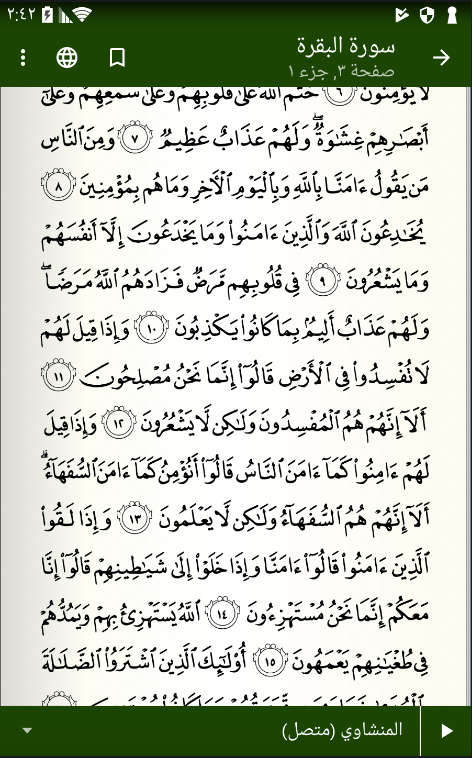 ٢:٤٢
سورة البقرة
صفحة ٣, جزء ١
لَا يُؤْمِنُونَ ٦ خَتَمَ ٱللَّهُ عَلَىٰ قُلُوبِهِمْ وَعَلَىٰ سَمْعِهِمْ وَعَلَىٰٓ
أَبْصَٰرِهِمْ غِشَٰوَةٌۖ وَلَهُمْ عَذَابٌ عَظِيمٌ ٧ وَمِنَ ٱلنَّاسِ
مَن يَقُولُ ءَامَنَّا بِٱللَّهِ وَبِٱلْيَوْمِ ٱلْأَخِرِ وَمَا هُم بِمُؤْمِنِينَ ٨
يُخَٰدِعُونَ ٱللَّهَ وَٱلَّذِينَ ءَامَنُوا۟ وَمَا يَخْدَعُونَ إِلَّآ أَنفُسَهُمْ
وَمَا يَشْعُرُونَ ٩ فِى قُلُوبِهِم مَّرَضٌ فَزَادَهُمُ ٱللَّهُ مَرَضًاۖ
وَلَهُمْ عَذَابٌ أَلِيمٌۢ بِمَا كَانُوا۟ يَكْذِبُونَ ١٠ وَإِذَا قِيلَ لَهُمْ
لَا تُفْسِدُوا۟ فِى ٱلْأَرْضِ قَالُوٓا۟ إِنَّمَا نَحْنُ مُصْلِحُونَ ١١
أَلَآ إِنَّهُمْ هُمُ ٱلْمُفْسِدُونَ وَلَٰكِن لَّا يَشْعُرُونَ ١٢ وَإِذَا قِيلَ
لَهُمْ ءَامِنُوا۟ كَمَآ ءَامَنَ ٱلنَّاسُ قَالُوٓا۟ أَنُؤْمِنُ كَمَآ ءَامَنَ ٱلسُّفَهَآءُۗ
أَلَآ إِنَّهُمْ هُمُ ٱلسُّفَهَآءُ وَلَٰكِن لَّا يَعْلَمُونَ ١٣ وَإِذَا لَقُوا۟
ٱلَّذِينَ ءَامَنُوا۟ قَالُوٓا۟ ءَامَنَّا وَإِذَا خَلَوْا۟ إِلَىٰ شَيَٰطِينِهِمْ قَالُوٓا۟ إِنَّا
مَعَكُمْ إِنَّمَا نَحْنُ مُسْتَهْزِءُونَ ١٤ ٱللَّهُ يَسْتَهْزِئُ بِهِمْ وَيَمُدُّهُمْ
فِى طُغْيَٰنِهِمْ يَعْمَهُونَ ١٥ أُو۟لَٰٓئِكَ ٱلَّذِينَ ٱشْتَرَوُا۟ ٱلضَّلَٰلَةَ
المنشاوي (متصل)